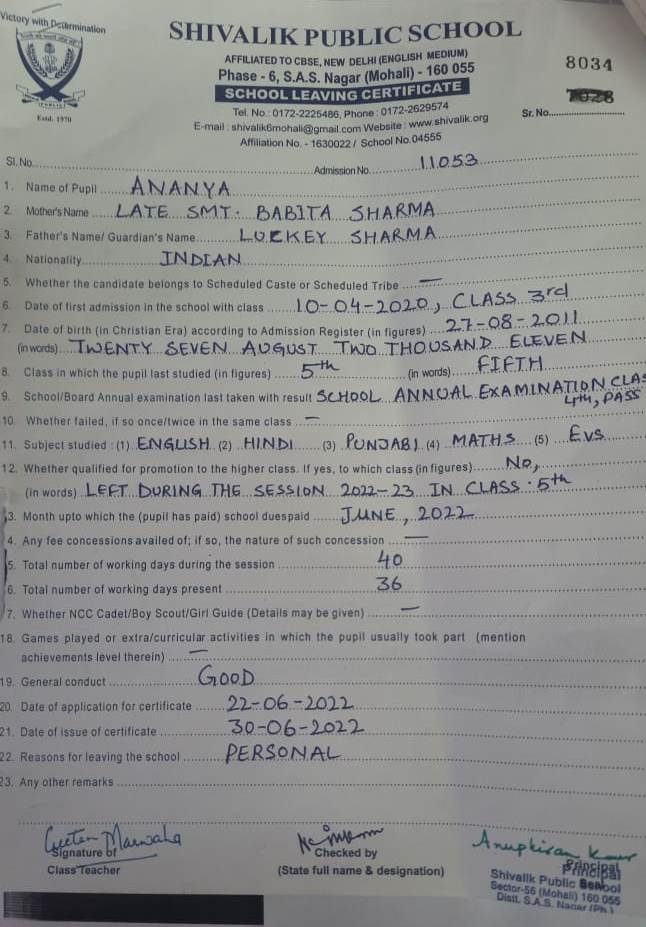 Victory with Determination
SHIVALIK PUBLIC SCHOOL
AFFILIATED TO CBSE, NEW DELHI (ENGLISH MEDIUM)
Phase - 6, S.A.S. Nagar (Mohali) - 160 055
SCHOOL LEAVING CERTIFICATE
Tel. No.: 0172-2225486, Phone: 0172-2629574
E-mail: shivalik6mohali@gmail.com Website: www.shivalik.org
Affiliation No. - 1630022 / School No.04555
Estd. 1970
8034
Sr. No.
Sl. No. Admission No. 11053
1. Name of Pupil ANANYA
2. Mother's Name LATE SMT. BABITA SHARMA
3. Father's Name/ Guardian's Name LUCKEY SHARMA
4. Nationality INDIAN
5. Whether the candidate belongs to Scheduled Caste or Scheduled Tribe —
6. Date of first admission in the school with class 10-04-2020, CLASS 3rd
7. Date of birth (in Christian Era) according to Admission Register (in figures) 27-08-2011
(in words) TWENTY SEVEN AUGUST TWO THOUSAND ELEVEN
8. Class in which the pupil last studied (in figures) 5th (in words) FIFTH
9. School/Board Annual examination last taken with result SCHOOL ANNUAL EXAMINATION CLAS
4th, PASS
10. Whether failed, if so once/twice in the same class —
11. Subject studied : (1) ENGLISH (2) HINDI (3) PUNJABI (4) MATHS (5) EVS
12. Whether qualified for promotion to the higher class. If yes, to which class (in figures) No,
(in words) LEFT DURING THE SESSION 2022-23 IN CLASS · 5th
3. Month upto which the (pupil has paid) school duespaid JUNE, 2022
4. Any fee concessions availed of; if so, the nature of such concession —
5. Total number of working days during the session 40
6. Total number of working days present 36
7. Whether NCC Cadet/Boy Scout/Girl Guide (Details may be given) —
18. Games played or extra/curricular activities in which the pupil usually took part (mention
achievements level therein) —
19. General conduct GOOD
20. Date of application for certificate 22-06-2022
21. Date of issue of certificate 30-06-2022
22. Reasons for leaving the school PERSONAL
23. Any other remarks
Geeten Marwaha
Signature of
Class Teacher
Checked by
(State full name & designation)
Anupkiran Kaur
Principal
Principal
Shivalik Public School
Sector-56 (Mohali) 160 055
Distt. S.A.S. Nagar (Pb.)